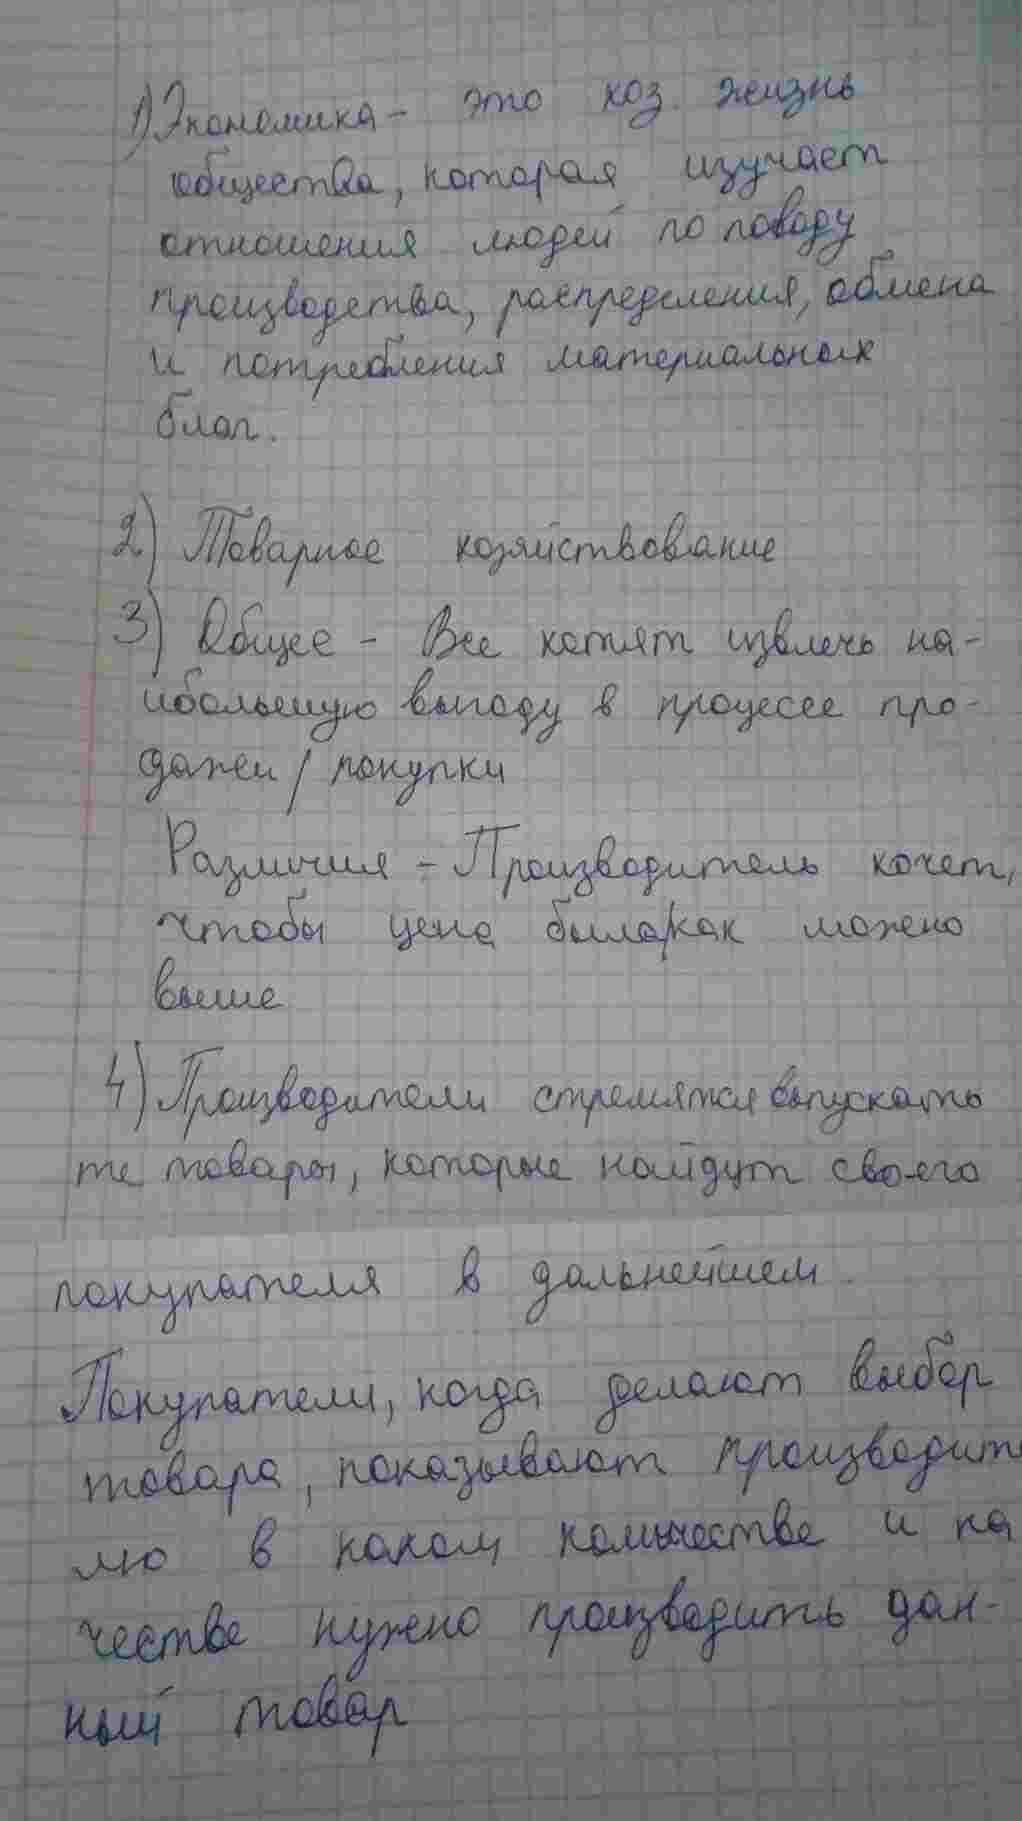 1) Экономика - это хоз. жизнь
общества, которая изучает
отношения людей по поводу
производства, распределения, обмена
и потребления материальных
благ.
2) Товарное хозяйствование
3) Общее - Все хотят извлечь на-
ибольшую выгоду в процессе про-
дажи / покупки
Различия - Производитель хочет,
чтобы цена была как можно
выше
4) Производители стремятся выпускать
те товары, которые найдут своего
покупателя в дальнейшем.
Покупатели, когда делают выбор
товара, показывают производите
лю в каком количестве и ка
честве нужно производить дан-
ный товар